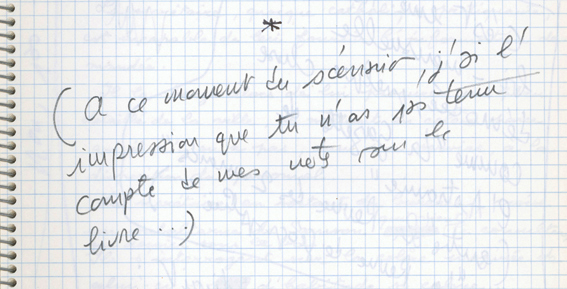 *
(A ce moment du scénario, j'ai l'
impression que tu n'as pas tenu
compte de mes notes sur le
livre...)